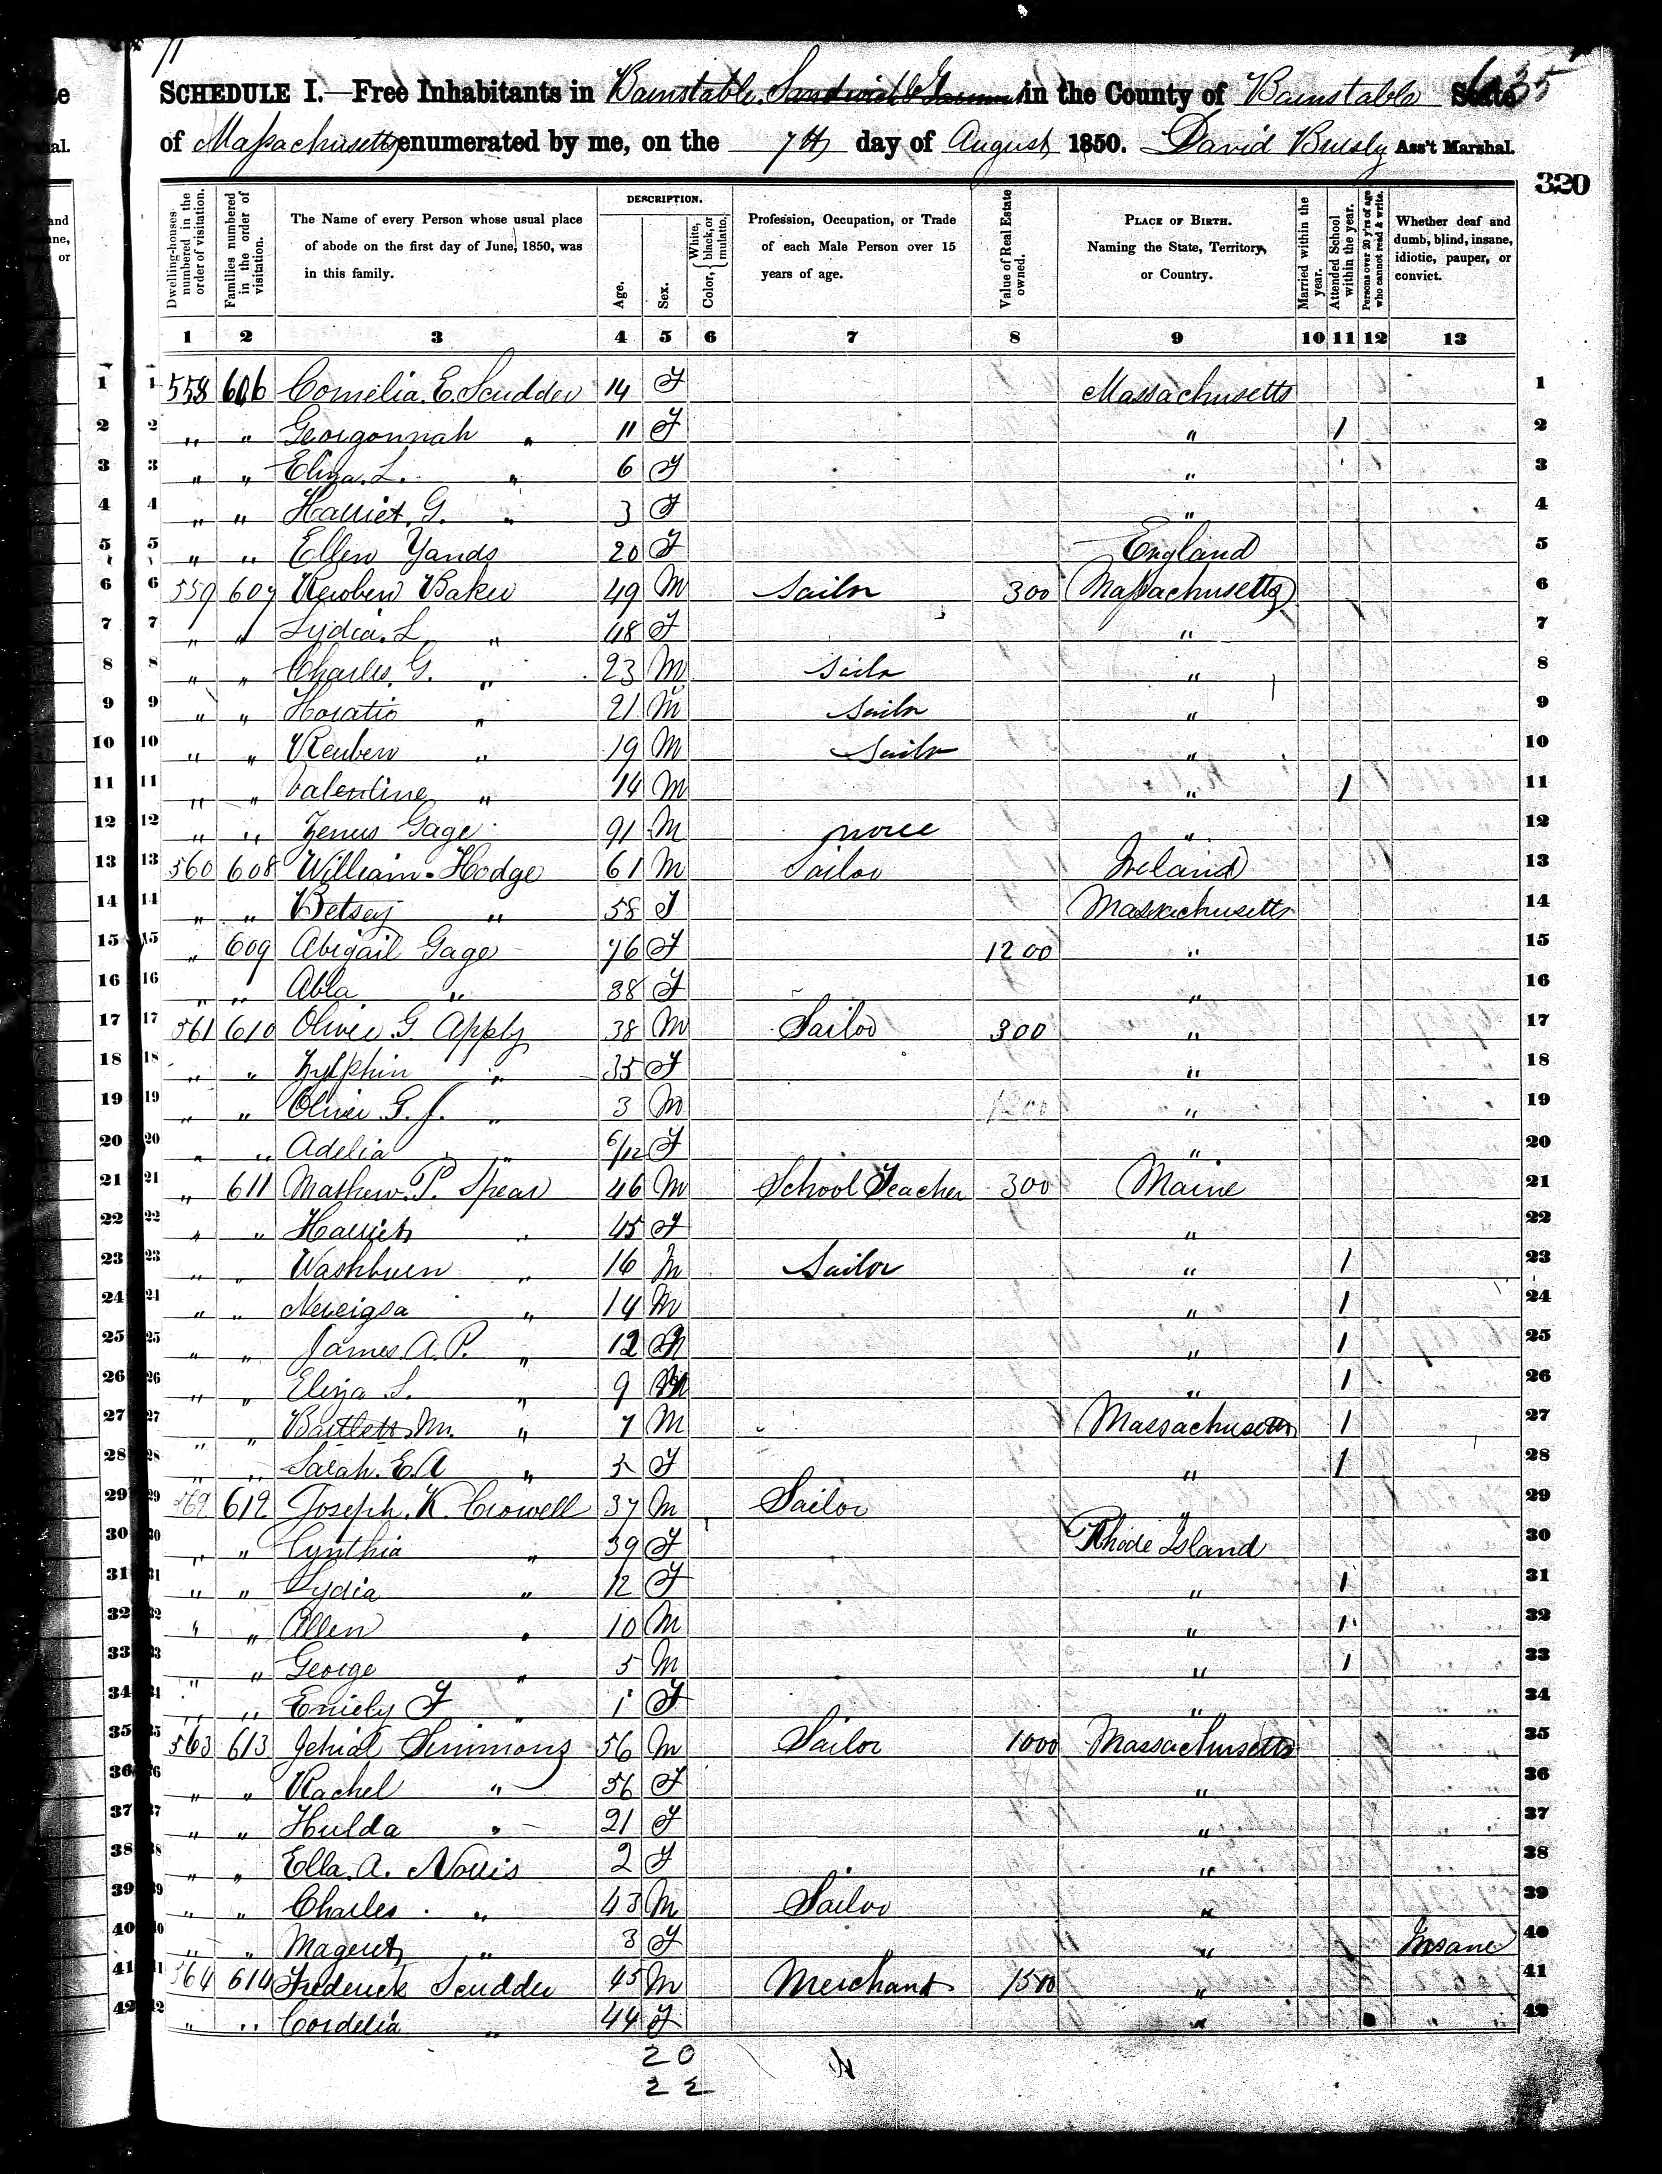 11
SCHEDULE I.—Free Inhabitants in Barnstable in the County of Barnstable State 635
of Massachusetts enumerated by me, on the 7th day of August 1850. David Bursly Ass't Marshal.
320
Dwelling-houses numbered in the order of visitation.
Families numbered in the order of visitation.
The Name of every Person whose usual place of abode on the first day of June, 1850, was in this family.
DESCRIPTION.
Age.
Sex.
Color, White, black, or mulatto.
Profession, Occupation, or Trade of each Male Person over 15 years of age.
Value of Real Estate owned.
PLACE OF BIRTH. Naming the State, Territory, or Country.
Married within the year.
Attended School within the year.
Persons over 20 y'rs of age who cannot read & write.
Whether deaf and dumb, blind, insane, idiotic, pauper, or convict.
1 2 3 4 5 6 7 8 9 10 11 12 13
1 558 606 Cornelia. E. Scudder 14 F Massachusetts 1
2 " " Georgonnah " 11 F " 1 2
3 " " Eliza. L. " 6 F " 3
4 " " Harriet. G. " 3 F " 4
5 " " Ellen Yands 20 F England 5
6 559 607 Reuben Baker 49 M Sailor 300 Massachusetts 6
7 " " Lydia. L " 48 F " 7
8 " " Charles. G. " 23 M Sailr " 8
9 " " Horatio " 21 M Sailor " 9
10 " " Reuben " 19 M Sailor " 10
11 " " Valentine " 14 M " 1 11
12 " " Zenus Gage 91 M none " 12
13 560 608 William Hodge 61 M Sailor Ireland 13
14 " " Betsey " 58 F Massachusetts 14
15 " 609 Abigail Gage 76 F 1200 " 15
16 " " Abba " 38 F " 16
17 561 610 Oliver G. Apply 38 M Sailor 300 " 17
18 " " Zylphin " 35 F " 18
19 " " Oliver G. J. " 3 M 1200 " 19
20 " " Adelia " 6/12 F " 20
21 " 611 Mathew. P. Spear 46 M School Teacher 300 Maine 21
22 " " Harriet " 45 F " 22
23 " " Washburn " 16 M Sailor " 1 23
24 " " " 14 M " 1 24
25 " " James. A. P. " 12 M " 1 25
26 " " Eliza S. " 9 " 1 26
27 " " Bartlett. M. " 7 M Massachusetts 1 27
28 " " Sarah. E. A " 5 F " 1 28
29 562 612 Joseph. K. Crowell 37 M Sailor " 29
30 " " Cynthia " 39 F Rhode Island 30
31 " " Lydia " 12 F " 1 31
32 " " Allen " 10 M " 1 32
33 " " George " 5 M " 1 33
34 " " Emiely F " 1 F " 34
35 563 613 Jehial Simmons 56 M Sailor 1000 Massachusetts 35
36 " " Rachel " 56 F " 36
37 " " Hulda " 21 F " 37
38 " " Ella. A. Norris 2 F " 38
39 " " Charles " 43 M Sailor " 39
40 " " Mageret " 3 F " Insane 40
41 564 614 Frederick Scudder 45 M Merchant 1500 " 41
42 " " Cordelia " 44 F " 42
20
22